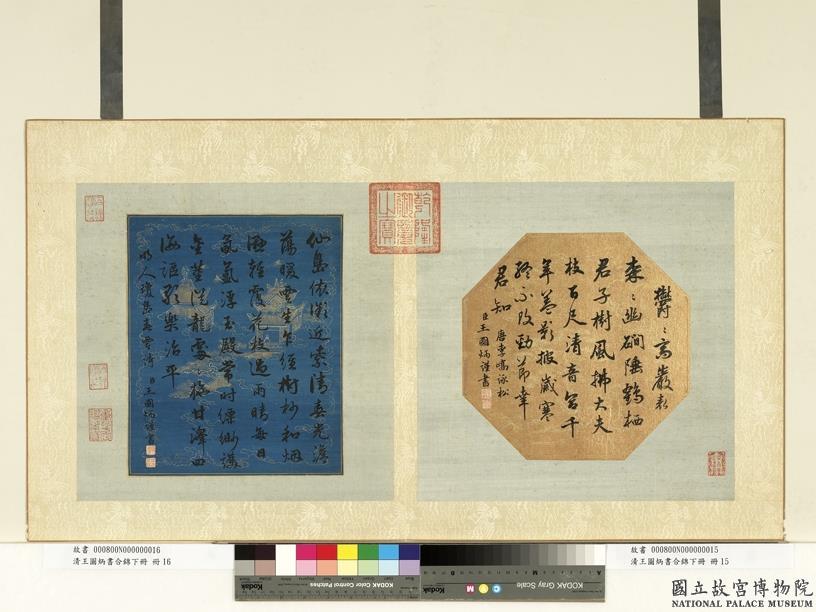 鬱〻高巖表
森〻幽磵陲鶴栖
君子樹風拂大夫
枝百尺清音合千
年蓋影披歲寒
終不改勁節幸
君知
唐李嶠詠松
臣王圖炳謹書
乾隆
御覽
之寶
仙島依微近紫清春光淡
蕩暖雲生乍經樹杪和烟
濕輕覆花枝過雨晴每日
氤氳浮玉殿常時縹緲護
金莖從龍處〻施甘澤四
海謳歌樂治平
明人瓊島春雲詩
臣王圖炳謹書
故書 000800N000000016
清王圖炳書合錦下冊 冊16
故書 000800N000000015
清王圖炳書合錦下冊 冊15
Kodak Color Control Patches
KODAK Gray Scale
國立故宮博物院
NATIONAL PALACE MUSEUM